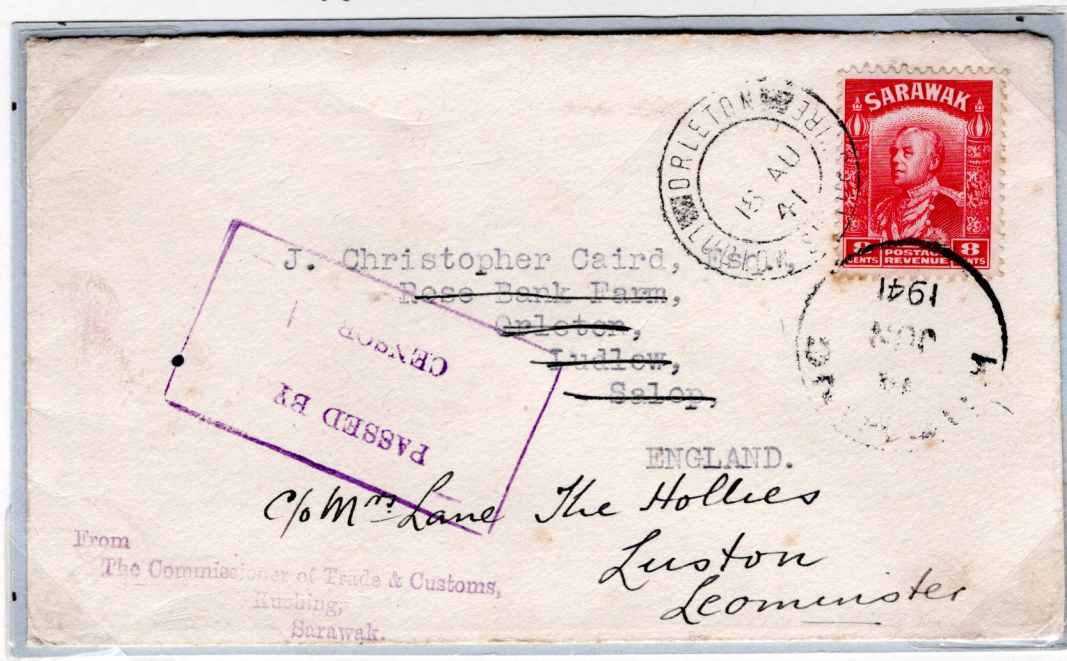 SARAWAK
8 CENTS POSTAGE REVENUE 8 CENTS
ORLETON
15 AU
41
1941
JUN
J. Christopher Caird, Esq.,
Rose Bank Farm,
Orleton,
Ludlow,
Salop,
ENGLAND.
PASSED BY
CENSOR
c/o Mrs Lane The Hollies
Luston
Leominster
From
The Commissioner of Trade & Customs,
Kuching,
Sarawak.